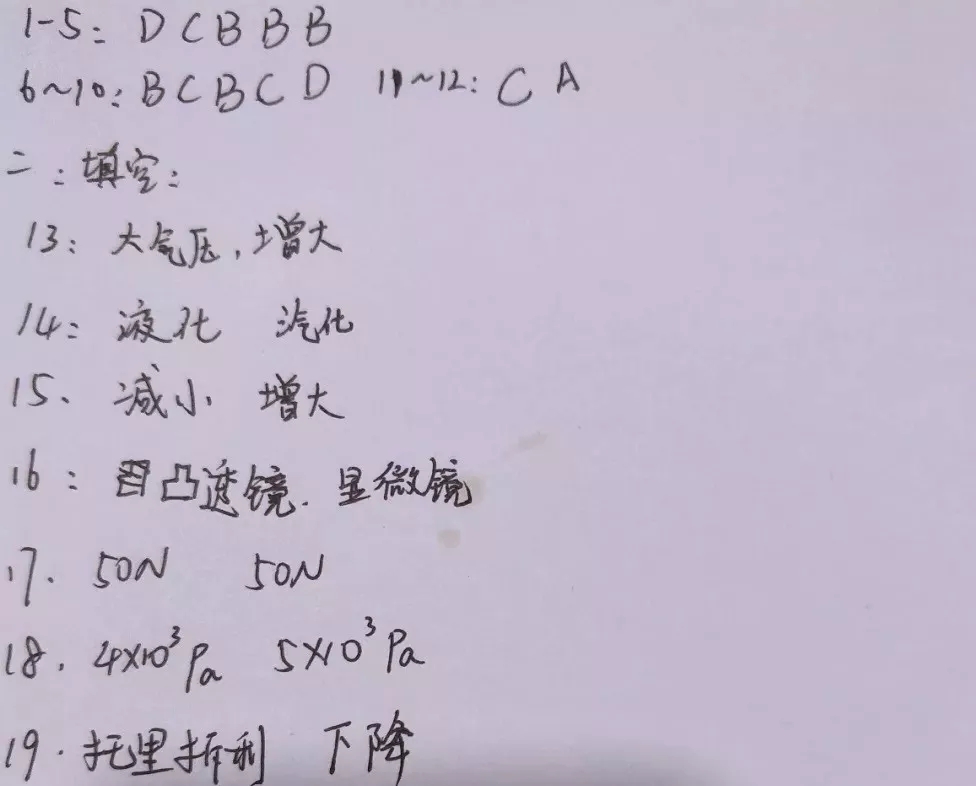 1-5: D C B B B
6~10: B C B C D 11~12: C A
二:填空:
13: 大气压,增大
14: 液化 汽化
15、减小 增大
16: 凸透镜. 显微镜
17. 50N 50N
18. 4×10³Pa 5×10³Pa
19.托里拆利 下降